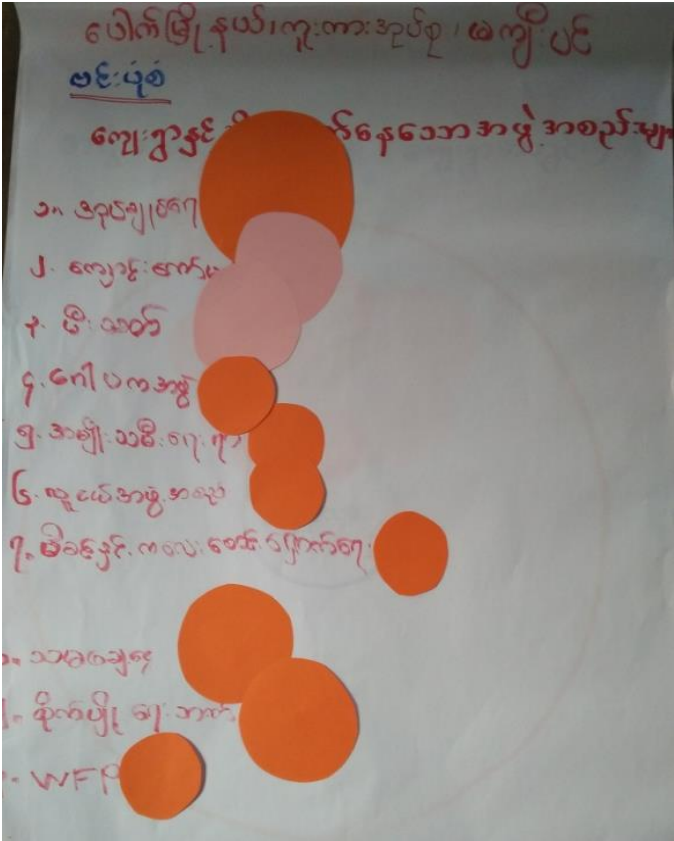 ပေါက်မြို့နယ်၊ကူးကားအုပ်စု၊မကျီးပင်
ဗင်းပုံစံ
ကျေးရွာနှင့် နေသောအဖွဲ့အစည်းများ
၁။ အုပ်ချုပ်ရေး
၂. ကျောင်းကော်မ
၃. မီးသတ်
၄. ဂေါပကအဖွဲ့
၅. အမျိုးသမီးရေးရာ
၆. လူငယ်အဖွဲ့အစည်း
၇။ မိခင်နှင့်ကလေးစောင့်ရှောက်ရေး
သမဝါယမ
စိုက်ပျိုးရေးဘဏ်
WFP